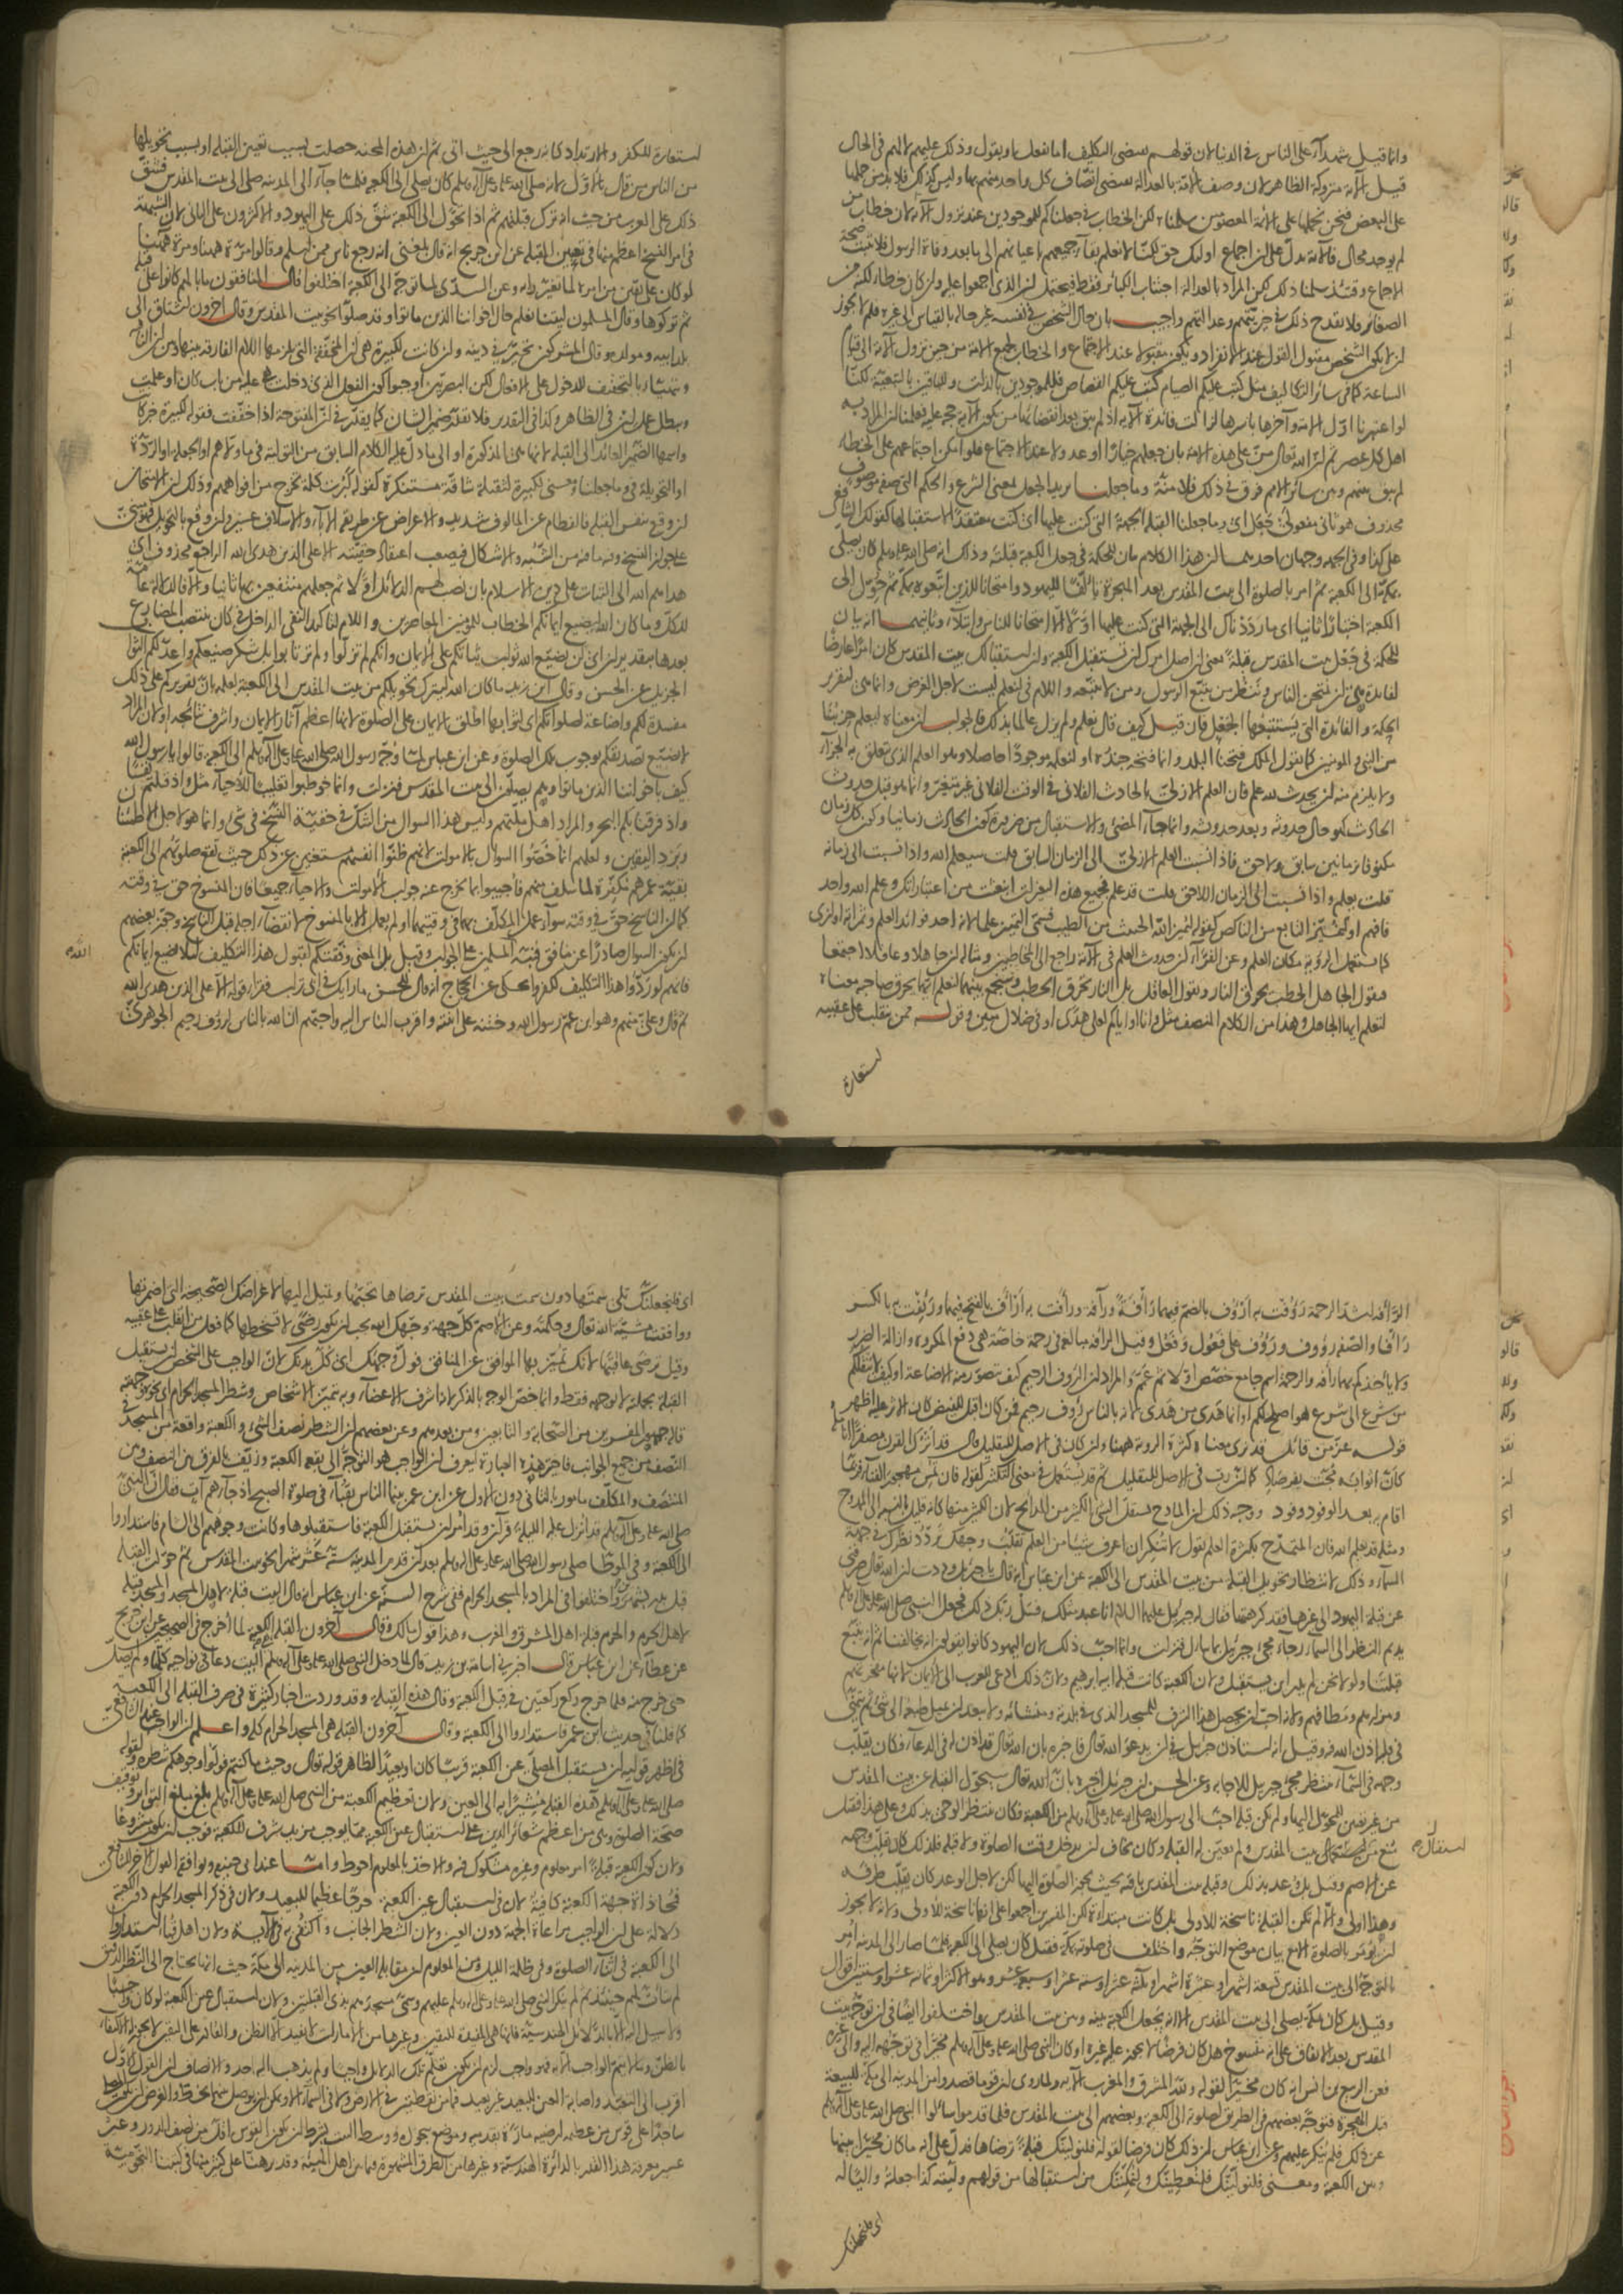 وانما قيل شهداء على الناس في الدنيا لان قولهم يقتضي التكليف اما بفعل او بقول وذلك عليهم لا لهم في الحال
قيل الآية متروكة الظاهر لان وصف الامة بالعدالة يقتضي اتصاف كل واحد منهم بها وليس كذلك فلا بد من حملها
على البعض فنحن نحملها على الائمة المعصومين سلمنا لكن الخطاب في جعلناكم للموجودين عند نزول الآية لان خطاب من
لم يوجد محال فالآية تدل على ان اجماع اولئك حق لكنا لا نعلم بقاء جميعهم باعيانهم الى ما بعد وفاة الرسول فلا تثبت صحة
الاجماع وقتئذ سلمنا ذلك لكن المراد بالعدالة اجتناب الكبائر فقط فيحتمل ان الذي اجمعوا عليه وان كان خطأ لكنه من
الصغائر فلا يقدح ذلك في خيريتهم وعدالتهم واجيب بان حال الشخص في نفسه غير حاله بالقياس الى غيره فلم لا يجوز
ان لا يكون الشخص مقبول القول عند الانفراد ويكون مقبولا عند الاجتماع والخطاب لجميع الامة من حين نزول الآية الى قيام
الساعة كما في سائر التكاليف مثل كتب عليكم الصيام كتب عليكم القصاص فللموجودين بالذات وللباقين بالتبعية لكنا
لو اعتبرنا اول الامة وآخرها باسرها لزالت فائدة الآية اذ لم يبق بعد انقضائها من تكون الآية حجة عليه فعلمنا ان المراد به
اهل كل عصر ثم ان الله تعالى من على هذه الامة بان جعلهم خيارا او عدولا عند الاجتماع فلو امكن اجتماعهم على الخطاء
لم يبق بينهم وبين سائر الامم فرق في ذلك فلا منة وما جعلنا يريد الجعل بمعنى الشرع والحكم التي صفة موصوف
محذوف هو ثاني مفعولي جعل اي وما جعلنا القبلة الجهة التي كنت عليها اي كنت معتقدا لاستقبالها كقولك الشافعي
على كذا وفي الجهة وجهان احدهما ان هذا الكلام بيان للحكمة في جعل الكعبة قبلة وذلك انه صلى الله عليه وسلم كان يصلي
بمكة الى الكعبة ثم امر بالصلوة الى بيت المقدس بعد الهجرة تألفا لليهود وامتحانا للذين اتبعوه بمكة ثم حول الى
الكعبة اختبارا ثانيا اي ما رددناك الى الجهة التي كنت عليها اولا الا امتحانا للناس وابتلاء وثانيهما انه بيان
للحكمة في جعل بيت المقدس قبلة يعني ان اصل امرك ان تستقبل الكعبة وان استقبالك بيت المقدس كان امرا عارضا
لفائدة هي ان نمتحن الناس وننظر من يتبع الرسول ومن لا يتبعه واللام في لنعلم ليست لاجل الغرض وانما هي لتقرير
الحكمة والفائدة التي يستتبعها الجعل فان قيل كيف قال لنعلم ولم يزل عالما بذلك فالجواب ان معناه ليعلم حزبنا
من النبي والمؤمنين كما يقول الملك فتحنا البلد وانما فتحه جنده او لنعلمه موجودا حاصلا وهو العلم الذي يتعلق به الجزاء
ولا يلزم منه ان يحدث لله علم فان العلم الازلي بالحادث الفلاني في الوقت الفلاني غير متغير وانما هو قبل حدوث
الحادث كهو حال حدوثه وبعد حدوثه وانما جاء المضي والاستقبال من ضرورة كون الحادث زمانيا وكون كل زمان
مكنوفا بزمانين سابق ولاحق فاذا نسبت العلم الازلي الى الزمان السابق قلت سيعلم الله واذا نسبت الى زمانه
قلت يعلم واذا نسبت الى الزمان اللاحق قلت قد علم فجميع هذه التغيرات انبعثت من اعتباراتك وعلم الله واحد
فافهم او لنميز التابع من الناكص كقوله ليميز الله الخبيث من الطيب فسمى التمييز علما لانه احد فوائد العلم وثمراته او لنرى
كما يستعمل الرؤية مكان العلم وعن الفراء ان حدوث العلم في الآية راجع الى المخاطبين ومثاله ان جاهلا وعاقلا اجتمعا
فيقول الجاهل الحطب يحرق النار ويقول العاقل بل النار تحرق الحطب وسنجمع بينهما لنعلم ايهما يحرق صاحبه معناه
لتعلم ايها الجاهل وهذا من الكلام المنصف مثل وانا او اياكم لعلى هدى او في ضلال مبين وقوله ممن ينقلب على عقبيه
استعارة
استعارة للكفر والارتداد كانه رجع الى حيث اتى ثم ان هذه المحنة حصلت بسبب تعيين القبلة او بسبب تحويلها
من الناس من قال بالاول لانه صلى الله عليه وعلى آله وسلم كان يصلي الى الكعبة فلما جاء الى المدينة صلى الى بيت المقدس فشق
ذلك على العرب من حيث انه ترك قبلتهم ثم اذا تحول الى الكعبة شق ذلك على اليهود والاكثرون على الثاني لان الشبهة
في امر النسخ اعظم منها في تعيين القبلة عن ابن جريج انه قال بلغني انه رجع ناس ممن اسلم وقالوا مرة ههنا ومرة ههنا
لو كان على يقين من امره لما تغير رأيه وعن السدي لما توجه الى الكعبة اختلفوا فقال المنافقون ما بالهم كانوا على قبلة
ثم تركوها وقال المسلمون ليتنا نعلم حال اخواننا الذين ماتوا وقد صلوا نحو بيت المقدس وقال آخرون اشتاق الى
بلد ابيه ومولده وقال المشركون تحير في دينه وان كانت لكبيرة هي ان المخففة التي يلزمها اللام الفارقة
واسمها الضمير العائد الى القبلة لانها هي المذكورة او الى ما دل عليه الكلام السابق من التولية في ما ولاهم او الجعلة او الردة
او التحويلة في وما جعلنا ومعنى لكبيرة لثقيلة شاقة مستنكرة كقوله كبرت كلمة تخرج من افواههم وذلك ان الامتحان
هداهم الله الى الثبات على دين الاسلام بان نصب لهم الدلائل اولا ثم جعلهم منتفعين بها ثانيا والا فالدلالة عامة
للكل وما كان الله ليضيع ايمانكم الخطاب للمؤمنين الحاضرين واللام لتاكيد النفي الداخل في كان ينتصب المضارع
بعدها بتقدير ان اي لن يضيع الله ثواب ثباتكم على الايمان وانكم لم تزلوا ولم ترتابوا بل شكر صنيعكم واعد لكم الثواب
الجزيل عن الحسن وقال ابن زيد ما كان الله ليترك تحويلكم من بيت المقدس الى الكعبة لعلمه بان تقريركم على ذلك
مفسدة لكم واضاعة لصلواتكم اي لثوابها اطلق الايمان على الصلوة لانها اعظم آثار الايمان واشرف نتائجه او لان المراد
لا يضيع تصديقكم بوجوب تلك الصلوة وعن ابن عباس لما وجه رسول الله صلى الله عليه وعلى آله وسلم الى الكعبة قالوا يا رسول الله
كيف باخواننا الذين ماتوا وهم يصلون الى بيت المقدس فنزلت وانما خوطبوا تغليبا للاحياء مثل واذ قتلتم نفسا
واذ فرقنا بكم البحر والمراد اهل ملتهم وليس هذا السؤال من الشك في حقية النسخ في شيء وانما هو لاجل اطمئنان
وبرد اليقين ولعلهم انما خصوا السؤال بالاموات لانهم ظنوا انفسهم مستغنين عن ذلك حيث تقع صلوتهم الى الكعبة
بقية عمرهم مكفرة لما سلف منهم فاجيبوا بما يخرج عنه جواب الاموات والاحياء جميعا فان المنسوخ حق في وقته
كما ان الناسخ حق في وقته سواء عمل المكلف بهما في وقتيهما او لم يعمل الا بالمنسوخ لانقضاء اجله قبل الناسخ وجوز بعضهم
ان يكون السؤال صادرا عن منافق فنبه المسلمين على الجواب وقيل بل المعنى وفقتكم لقبول هذا التكليف لئلا يضيع ايمانكم
فانهم لو ردوا هذا التكليف لكفروا يحكى عن الحجاج انه قال للحسن ما رايك في ابي تراب فقرا قوله الا على الذين هدى الله
ثم قال وعلي منهم وهو ابن عم رسول الله وختنه على ابنته واقرب الناس اليه واحبهم ان الله بالناس لرؤف رحيم الجوهري
الرأفة اشد الرحمة رؤفت به ارؤف بالضم فيهما رأفة ورآفة ورأفت به ارأف بالفتح فيهما ورئفت به بالكسر
رأفا والصفة رؤوف ورؤف على فعول وفعل وقيل الرأفة مبالغة في رحمة خاصة هي دفع المكروه وازالة الضرر
ولا يأخذكم بهما رأفة والرحمة اسم جامع خصص اولا ثم عمم والمراد ان الرؤف الرحيم كيف يتصور منه الاضاعة او كيف لا ينقلكم
من شرع الى شرع هو اصلح لكم او انما هدى من هدى لانه بالناس رؤف رحيم
قوله عز من قائل قد نرى معناه كثرة الرؤية ههنا وان كان في الاصل للتقليل قال قد اترك القرن مصفرا انامله
كان اثوابه مجت بفرصاد كما ان رب في الاصل للتقليل ثم قد يستعمل في معنى التكثير كقوله فان تمس مهجور الفناء فربما
اقام به بعد الوفود وفود ووجه ذلك ان المادح يستقل الشيء الكثير من المدائح لان الكثير منها كانه قليل بالنسبة الى الممدوح
ومثله قد يعلم الله فان المتمدح بكثرة العلم يقول لا تنكر ان اعرف شيئا من العلم تقلب وجهك تردد نظرك في جهة
السماء وذلك لانتظار تحويل القبلة من بيت المقدس الى الكعبة عن ابن عباس انه قال يا جبريل وددت ان الله تعالى صرفني
عن قبلة اليهود الى غيرها فقد كرهتها فقال له جبريل عليه السلام انا عبد مثلك فسل ربك ذلك فجعل النبي صلى الله عليه وعلى آله وسلم
يديم النظر الى السماء رجاء مجيء جبريل بما سأل فنزلت وانما احب ذلك لان اليهود كانوا يقولون انه يخالفنا ثم انه يتبع
قبلتنا ولولا نحن لم يدر اين يستقبل ولان الكعبة كانت قبلة ابيه ابراهيم ولان ذلك ادعى للعرب الى الايمان لانها مفخرتهم
ومزارهم ومطافهم ولانه احب ان يحصل هذا الشرف للمسجد الذي في بلدته ومنشائه ولا يبعد ان يميل طبعه الى شيء ثم يتمنى
في قلبه اذن الله فيه وقيل انه استاذن جبريل في ان يدعو الله تعالى فاخبره بان الله تعالى قد اذن له في الدعاء فكان يقلب
وجهه في السماء منتظر مجيء جبريل للاجابة وعن الحسن ان جبريل اخبره بان الله تعالى سيحول القبلة عن بيت المقدس
من غير تعيين للمحول اليها ولم تكن قبلة احب الى رسول الله صلى الله عليه وعلى آله وسلم من الكعبة فكان ينتظر الوحي بذلك وعلى هذا فقيل
منع من استقبال بيت المقدس ولم يعين له القبلة وكان يخاف ان يدخل وقت الصلوة ولا قبلة فلذلك كان يقلب وجهه
عن الاصم وقيل بل وعد بذلك وقبلة بيت المقدس باقية بحيث تجوز الصلوة اليها لكن لاجل الوعد كان يقلب طرفه
وهذا اولى والا لم تكن القبلة ناسخة للاولى بل كانت مبتدأة لكن المفسرين اجمعوا على انها ناسخة للاولى ولانه لا يجوز
ان يؤمر بالصلوة الا مع بيان موضع التوجه واختلف في صلوته بمكة فقيل كان يصلي الى الكعبة فلما صار الى المدينة امر
بالتوجه الى بيت المقدس تسعة اشهر او عشرة اشهر او ثلثة عشر او ستة عشر او سبعة عشر وهو الاكثر او ثمانية عشر او سنتين اقوال
وقيل بل كان بمكة يصلي الى بيت المقدس الا انه يجعل الكعبة بينه وبين بيت المقدس واختلفوا ايضا في ان توجه بيت
المقدس بعد الاتفاق على انه منسوخ هل كان فرضا لا يجوز عليه غيره او كان النبي صلى الله عليه وعلى آله وسلم مخيرا في توجهه اليه والى غيره
فعن الربيع بن انس انه كان مخيرا لقوله ولله المشرق والمغرب الآية ولما روى ان قوما قصدوا من المدينة الى مكة للبيعة
قبل الهجرة فتوجه بعضهم في الطريق لصلوته الى الكعبة وبعضهم الى بيت المقدس فلما قدموا سألوا النبي صلى الله عليه وعلى آله وسلم
عن ذلك فلم ينكر عليهم وعن ابن عباس ان ذلك كان فرضا لقوله فلنولينك قبلة ترضاها فدل على انه ما كان مخيرا بينها
وبين الكعبة ومعنى فلنولينك فلنعطينك ولنمكننك من استقبالها من قولهم وليته كذا جعلته واليا له
اي فلنجعلنك
اي فلنجعلنك تلي سمتها دون سمت بيت المقدس ترضاها تحبها وتميل اليها لاغراضك الصحيحة التي اضمرتها
ووافقت مشية الله تعالى وحكمته وعن الاصم كل جهة وجهك الله يجب ان يكون رضى لا تسخطها كما فعل من انقلب على عقبيه
وقيل ترضى عاقبتها لانك تميز بها الموافق عن المنافق فول وجهك اي كل بدنك لان الواجب على الشخص ان يستقبل
القبلة بجملته لا بوجهه فقط وانما خص الوجه بالذكر لانه اشرف الاعضاء وبه تتميز الاشخاص وشطر المسجد الحرام اي نحوه وجهته
قاله جمهور المفسرين من الصحابة والتابعين ومن بعدهم وعن بعضهم ان الشطر نصف الشيء والكعبة واقعة من المسجد في
النصف من جميع الجوانب فاختار هذه العبارة ليعرف ان الواجب هو التوجه الى بقعة الكعبة وزيف بالفرق بين النصف وبين
المنتصف والمكلف مأمور بالثاني دون الاول عن ابن عمر بينما الناس بقباء في صلوة الصبح اذ جاءهم آت فقال ان النبي
صلى الله عليه وعلى آله وسلم قد انزل عليه الليلة قرآن وقد امر ان يستقبل الكعبة فاستقبلوها وكانت وجوههم الى الشام فاستداروا
الى الكعبة وفي الموطأ صلى رسول الله صلى الله عليه وعلى آله وسلم بعد ان قدم المدينة ستة عشر شهرا نحو بيت المقدس ثم حولت القبلة
قبل بدر بشهرين واختلفوا في المراد بالمسجد الحرام ففي شرح السنة عن ابن عباس انه قال البيت قبلة لاهل المسجد والمسجد قبلة
لاهل الحرم والحرم قبلة اهل المشرق والمغرب وهذا قول مالك وقال آخرون القبلة الكعبة لما اخرج في الصحيحين عن ابن جريج
عن عطاء عن ابن عباس قال اخبرني اسامة بن زيد قال لما دخل النبي صلى الله عليه وعلى آله وسلم البيت دعا في نواحيه كلها ولم يصل
حتى خرج منه فلما خرج ركع ركعتين في قبل الكعبة وقال هذه القبلة وقد وردت اخبار كثيرة في صرف القبلة الى الكعبة
كما قلنا في حديث ابن عمر فاستداروا الى الكعبة وقال آخرون القبلة هي المسجد الحرام كله واعلم ان الواجب عند الشافعي
في اظهر قوليه ان يستقبل المصلي عين الكعبة قريبا كان او بعيدا لظاهر قوله تعالى وحيث ما كنتم فولوا وجوهكم شطره ولقوله
صلى الله عليه وعلى آله وسلم هذه القبلة مشيرا به الى العين ولان تعظيم الكعبة من النبي صلى الله عليه وعلى آله وسلم بلغ مبلغ التواتر وتوقيف
صحة الصلوة وهي من اعظم شعائر الدين على استقبال عين الكعبة مما يوجب مزيد شرف للكعبة فوجب ان يكون مشروعا
ولان كون الكعبة قبلة امر معلوم وغيره مشكوك فيه والاخذ بالمعلوم احوط واما عند ابي حنيفة ويوافقه القول الآخر للشافعي
فمحاذاة جهة الكعبة كافية لان في استقبال عين الكعبة حرجا عظيما للبعيد ولان في ذكر المسجد الحرام دون الكعبة
دلالة على ان الواجب مراعاة الجهة دون العين ولان الشطر الجانب واكتفي به في الآية ولان اهل قباء استداروا
الى الكعبة في اثناء الصلوة وفي ظلمة الليل ومن المعلوم ان مقابلة العين من المدينة الى مكة حيث انها تحتاج الى النظر الدقيق
لم يتأت لهم حينئذ ثم لم ينكر النبي صلى الله عليه وعلى آله وسلم عليهم وسمي مسجدهم بذي القبلتين ولان استقبال عين الكعبة لو كان واجبا
ولا سبيل اليه الا بالدلائل الهندسية فانها هي المفيدة لليقين وغيرها من الامارات لا يفيد الا الظن والقادر على اليقين لا يجوز له الاكتفاء
بالظن وما لا يتم الواجب الا به فهو واجب لزم ان يكون تعلم تلك الدلائل واجبا ولم يذهب اليه احد والانصاف ان القول الاول